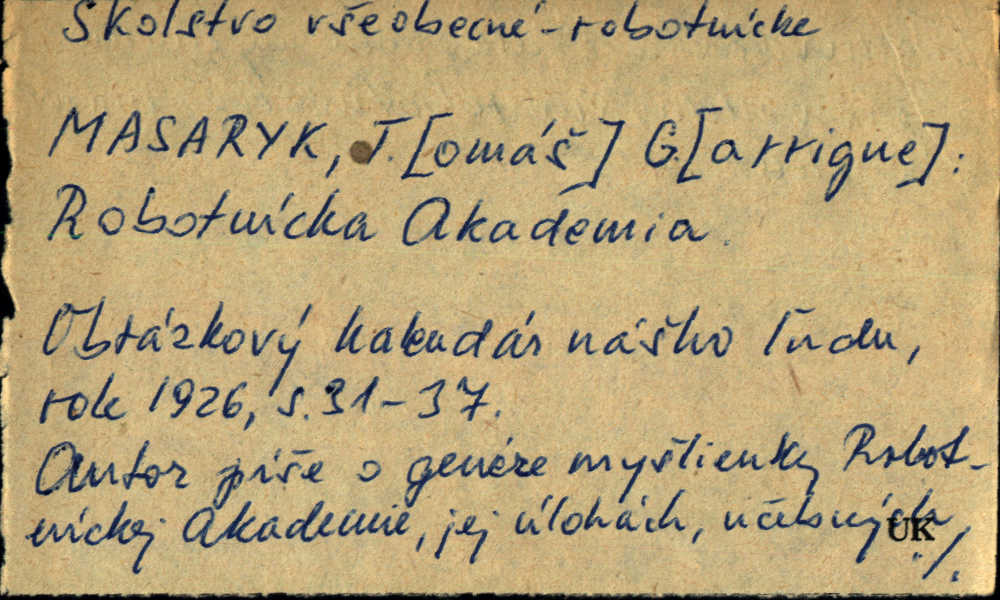 Školstvo všeobecné - robotnícke
MASARYK, T.[omáš] G.[arrigue]:
Robotnícka Akademia.
Obrázkový kalendár nášho ľudu,
rok 1926, s. 31-37.
Autor píše o genéze myšlienky Robot-
níckej Akademie, jej úlohách, učebných
UK
./.